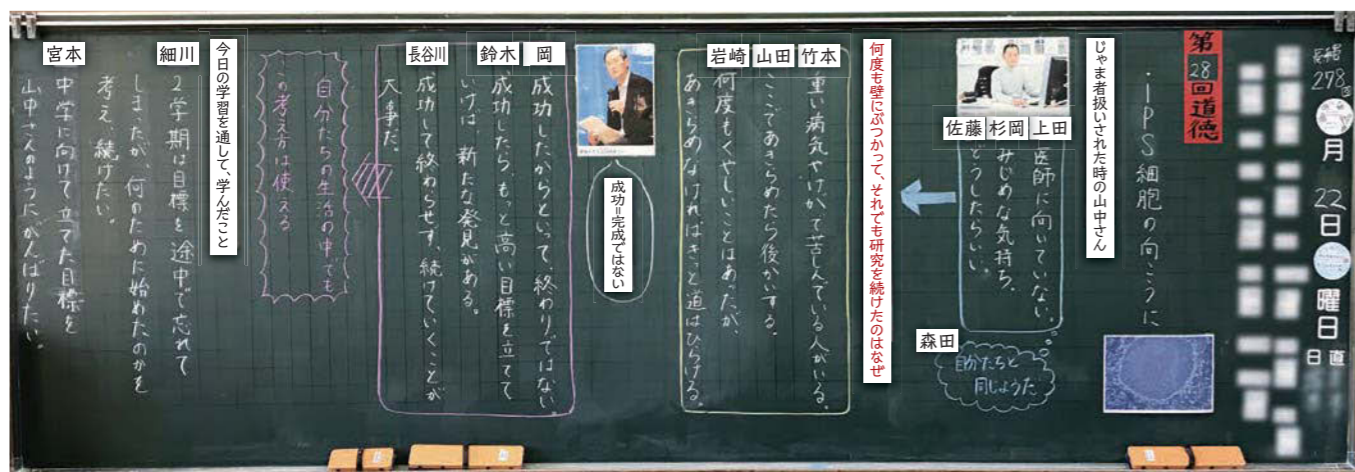 278
月
22
日
曜日
日直
第28回道徳
・iPS細胞の向こうに
じゃま者扱いされた時の山中さん
上田
医師に向いていない。
杉岡
みじめな気持ち、
佐藤
どうしたらいい。
森田
自分たちと
同じようだ
何度も壁にぶつかって、それでも研究を続けたのはなぜ
竹本
重い病気やけがで苦しんでいる人がいる。
山田
ここであきらめたら後かいする。
岩崎
何度もくやしいことはあったが、
あきらめなければきっと道はひらける。
成功=完成ではない
岡
成功したからといって、終わりではない。
鈴木
成功したら、もっと高い目標を立てて
いけば、新たな発見がある。
長谷川
成功して終わらせず、続けていくことが
大事だ。
自分たちの生活の中でも
この考え方は使える
今日の学習を通して、学んだこと
細川
2学期は目標を途中で忘れて
しまったが、何のために始めたのかを
考え、続けたい。
宮本
中学に向けて立てた目標を
山中さんのようにがんばりたい。